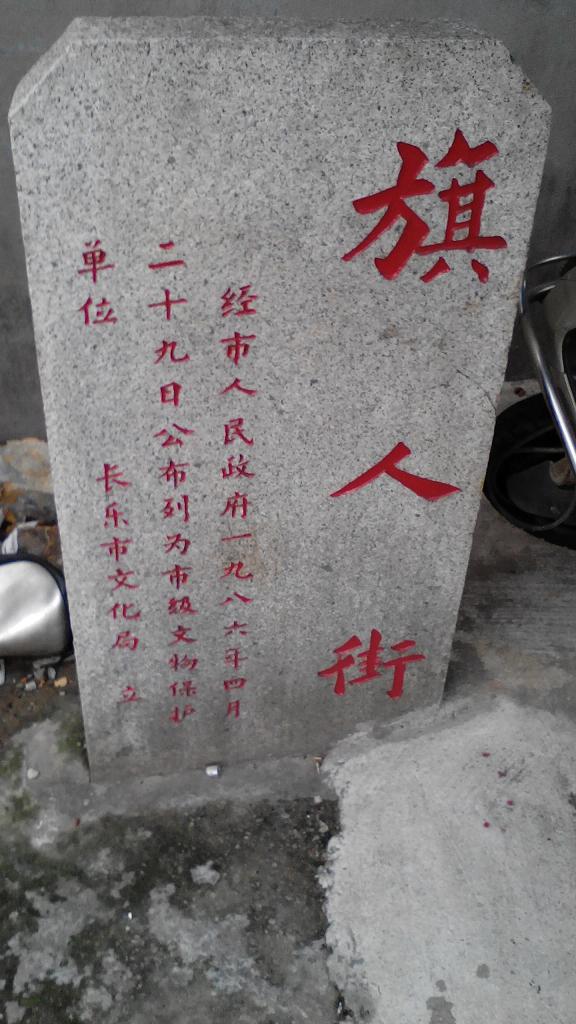 旗人街
经市人民政府一九八六年四月
二十九日公布列为市级文物保护
单位
长乐市文化局 立